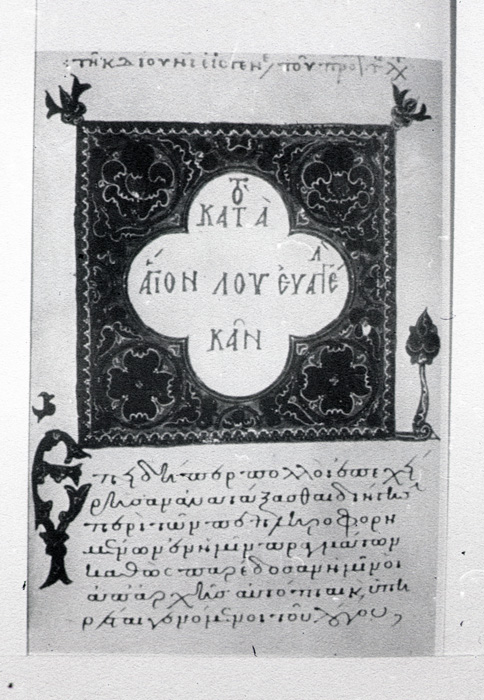 τῆ κδ ἰουνι εἰς γεν τοῦ προδ
τὸ
ΚΑΤᾺ
ἍΓΙΟΝ ΛΟΥ ἘΥΑΓΓΈ
ΚᾶΝ
Ἐπειδήπερ πολλοὶ ἐπεχεί
ρησαν ἀνατάξασθαι διήγησιν
περὶ τῶν πεπληροφορη
μένων ἐν ἡμῖν πραγμάτων
καθὼς παρέδοσαν ἡμῖν οἱ
ἀπ' ἀρχῆς αὐτόπται κ, ὑπη
ρέται γενόμενοι τοῦ λόγου,